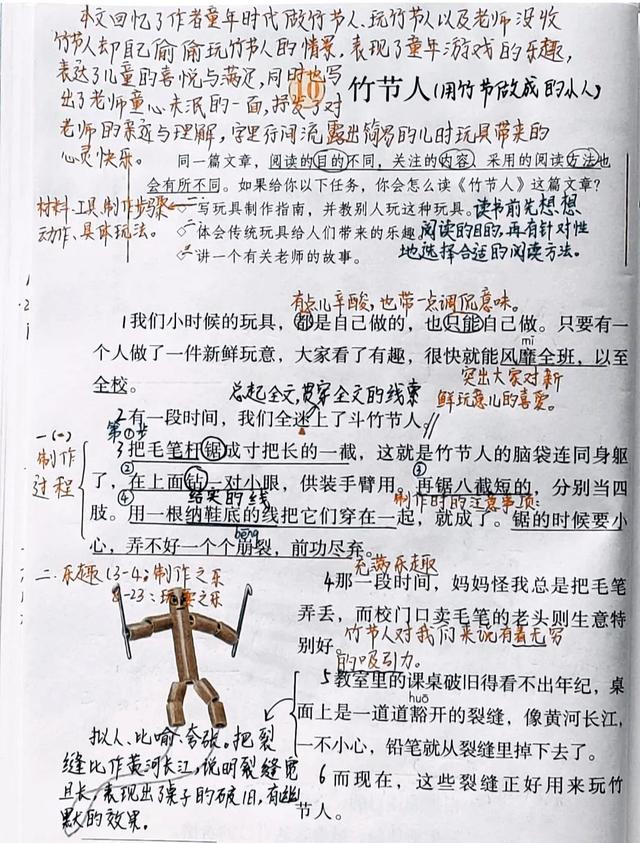 本文回忆了作者童年时代做竹节人、玩竹节人以及老师没收
竹节人却自己偷偷玩竹节人的情景，表现了童年游戏的乐趣，
表达了儿童的喜悦与满足，同时也写
出了老师童心未泯的一面，抒发了对
老师的亲近与理解，字里行间流露出简易的儿时玩具带来的
心灵快乐。
10 竹节人(用竹节做成的小人)
同一篇文章，阅读的目的不同，关注的内容 采用的阅读方法也
会有所不同。如果给你以下任务，你会怎么读《竹节人》这篇文章？
材料·工具、制作步骤
动作、具体玩法。
◇写玩具制作指南，并教别人玩这种玩具。
◇体会传统玩具给人们带来的乐趣
◇讲一个有关老师的故事。
读书前先想想
阅读的目的，再有针对性
地选择合适的阅读方法。
有点儿辛酸，也带一点调侃意味。
1我们小时候的玩具，都是自己做的，也只能自己做。只要有一
mǐ
个人做了一件新鲜玩意，大家看了有趣，很快就能风靡全班，以至
全校。
突出大家对新
鲜玩意儿的喜爱。
总起全文，贯穿全文的线索
2有一段时间，我们全迷上了斗竹节人。
一(一)
制作
过程
第①步
3把毛笔杆锯成寸把长的一截，这就是竹节人的脑袋连同身躯
② ③
了，在上面钻一对小眼，供装手臂用。再锯八截短的，分别当四
④ 结实的线 制作时的注意事项：
肢。用一根纳鞋底的线把它们穿在一起，就成了。锯的时候要小
bēng
心，弄不好一个个崩裂，前功尽弃。
二.乐趣(3-4：制作之乐
8-23：玩耍之乐
充满乐趣
4那一段时间，妈妈怪我总是把毛笔
弄丢，而校门口卖毛笔的老头则生意特
别好。
竹节人对我们来说有着无穷
的吸引力。
5教室里的课桌破旧得看不出年纪，桌
huō
面上是一道道豁开的裂缝，像黄河长江，
一不小心，铅笔就从裂缝里掉下去了。
6而现在，这些裂缝正好用来玩竹
节人。
拟人、比喻、夸张。把裂
缝比作黄河长江，说明裂缝宽
且长，表现出了桌子的破旧，有幽
默的效果。